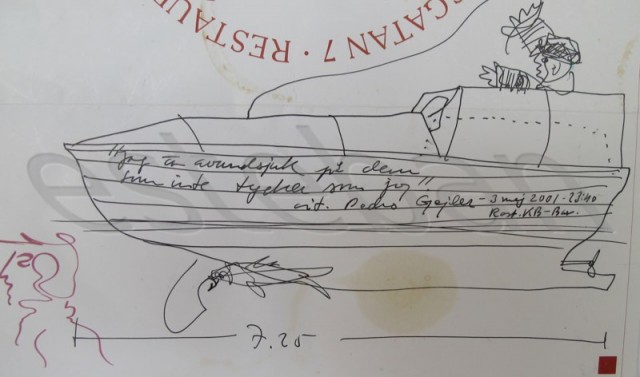 GATAN 7 · RESTAU
"jag är avundsjuk på dem
som inte tycker som jag"
cit. Pedro - 3 maj 2001 - 23:40
Rest. KB-Bar.
7.25